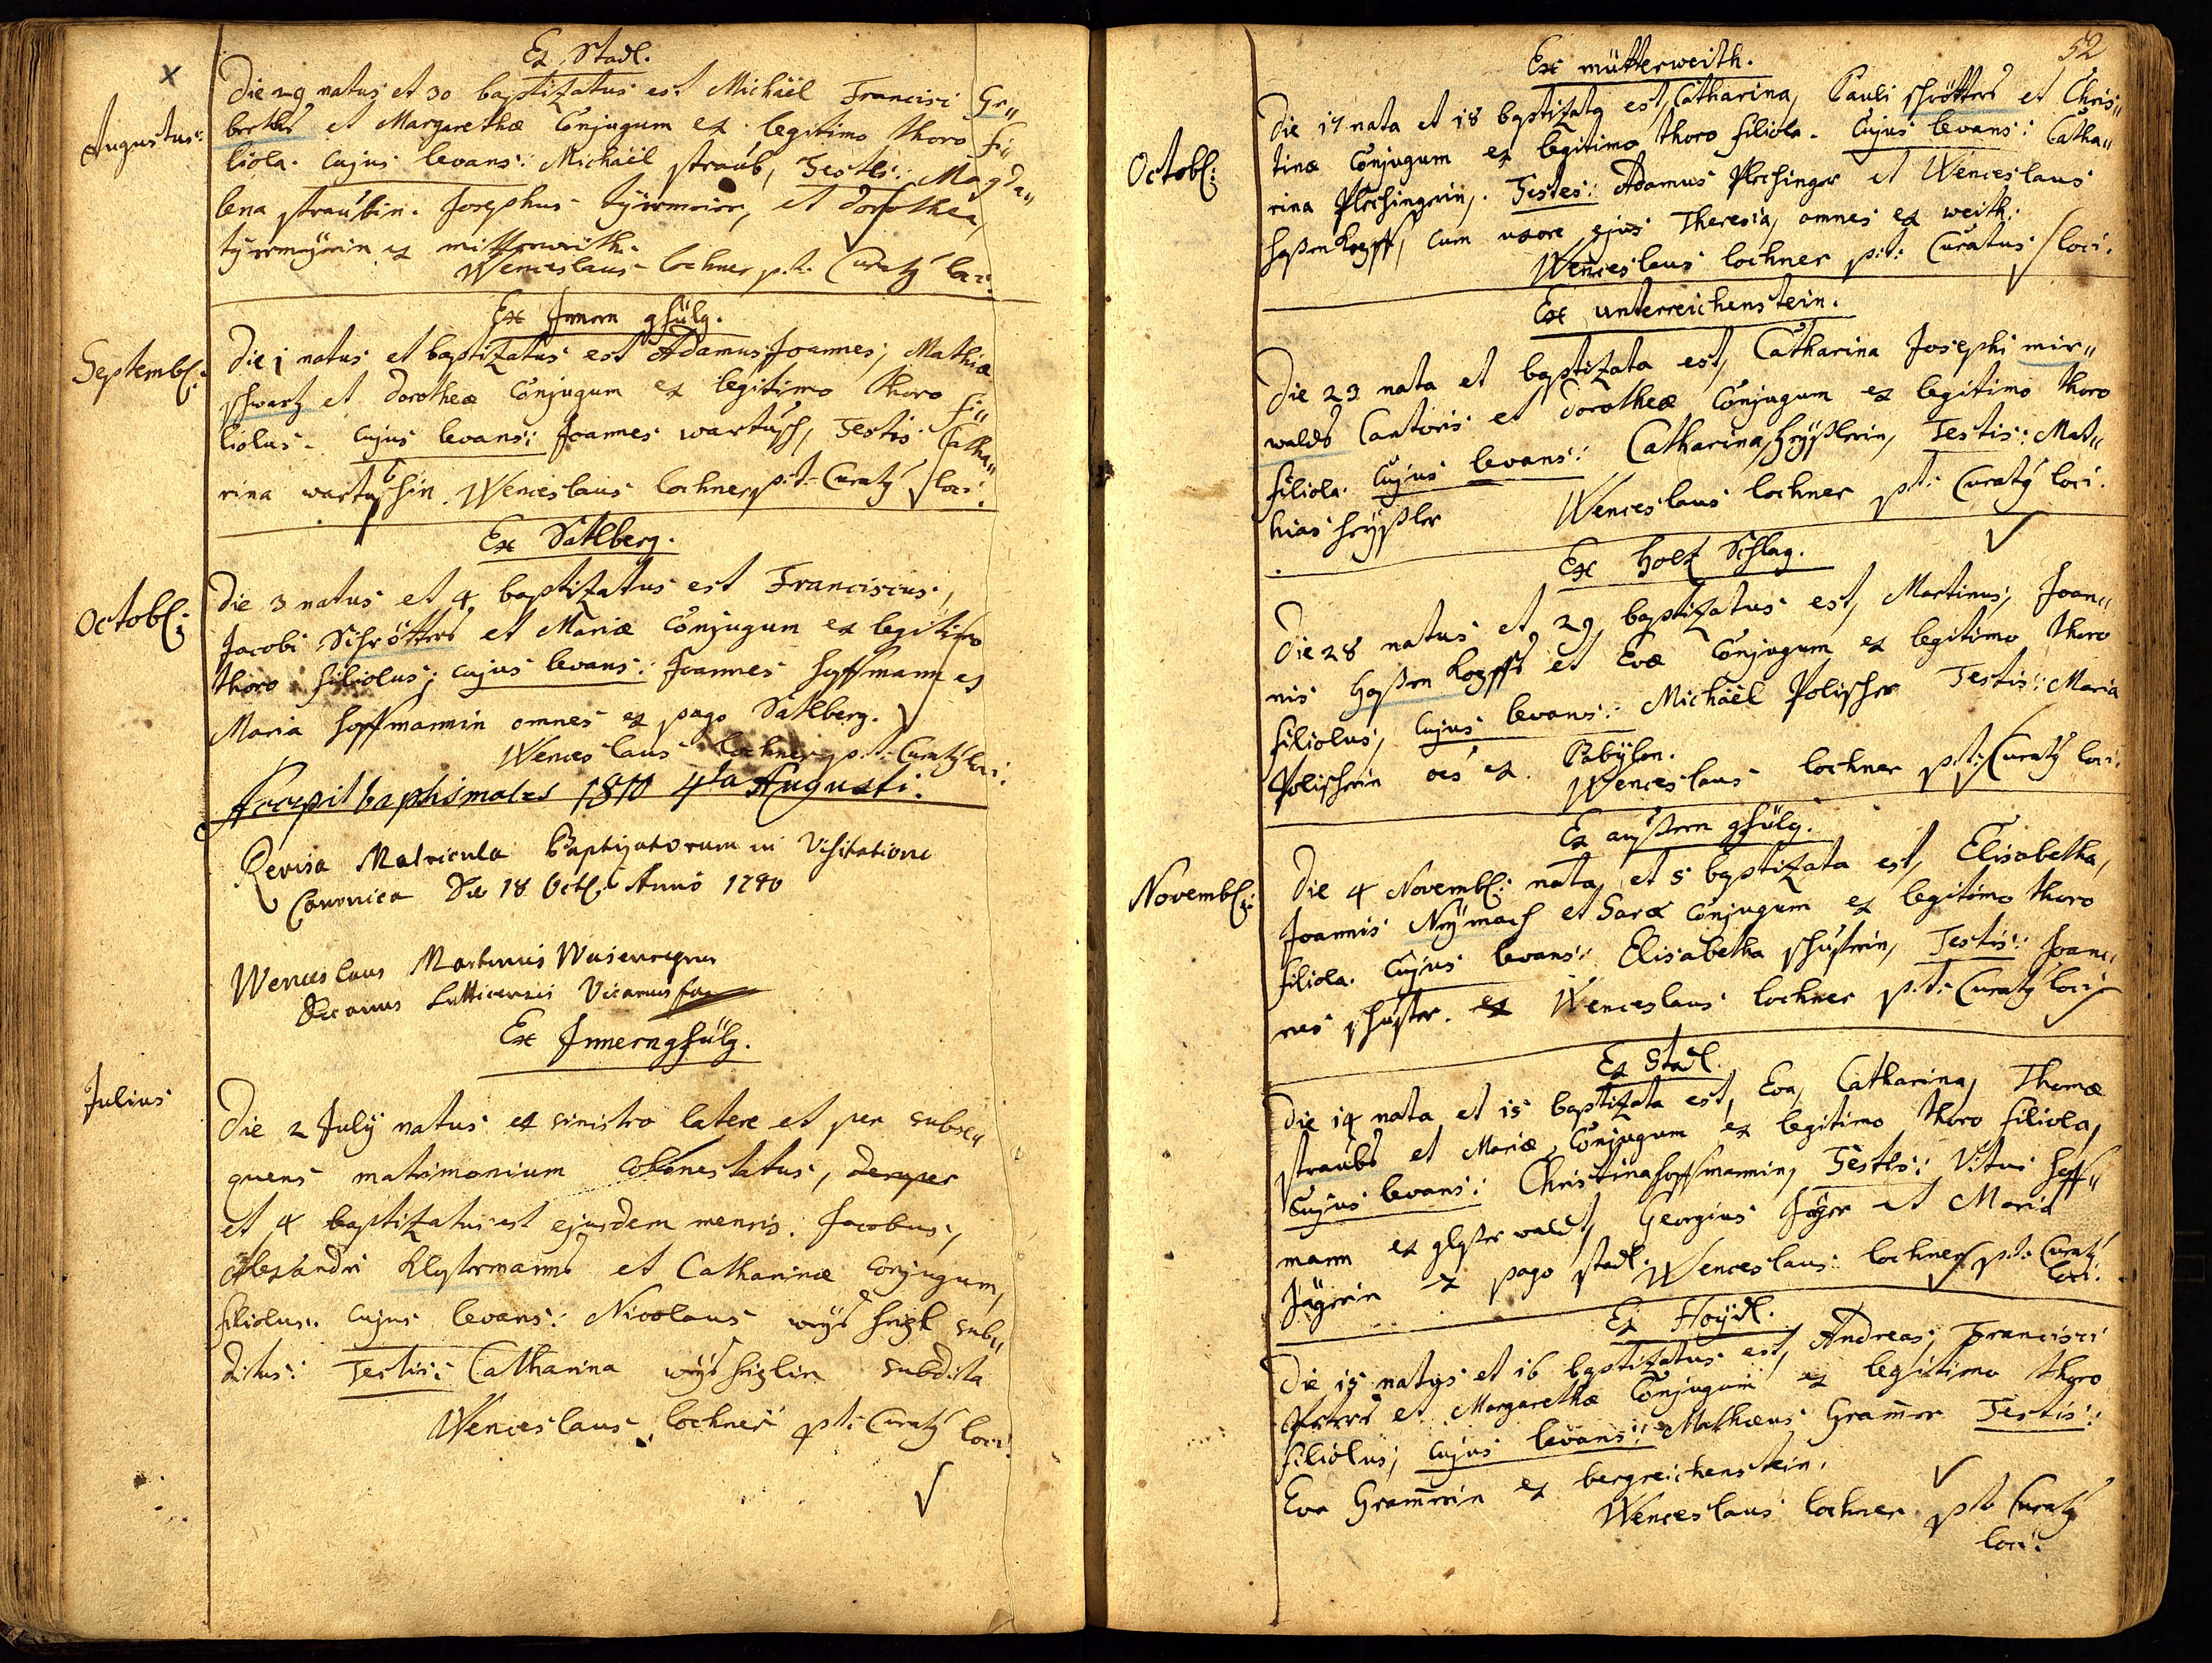 Ex Stadl.
Augustus:
Die 29 natus et 30 baptizatus est Michäel Francisci Gr„
berths et Margarethæ Conjugum ex legitimo thoro fi„
liola. Cujus levans: Michäel straub, Testes: Magda„
lena straubin. Josephus tyirmeier, et dorothea
tyirmeyrin ex mitterweith.
Wenceslaus lochner p.t. Curatg loci.
Ex Innern gfülg.
Septembl:
Die 1 natus et baptizatus est Adamus Joannes, Mathiæ
schwartz et dorotheæ Conjugum ex legitimo thoro fi„
liolus. Cujus levans: Joannes wartusch, Testis Catha„
rina wartuschin. Wenceslaus lochner p.t. Curatg loci.
Ex Sattlberg.
Octobl:
Die 3 natus et 4 baptizatus est Franciscus,
Jacobi Schrötters et Mariæ Conjugum ex legitimo
thoro filiolus; cujus levans: Joannes hoffmann et
Maria hoffmannin omnes ex pago Sattlberg.
Wenceslaus lochner p.t. Curatg loci.
Accepit baptismales 1810 4ta Augusti.
Revisa Matricula Baptizatorum in Visitatione
Canonica Die 18 Octl. Anno 1780
Wenceslaus Martinus
Decanus Vicarius
Ex Innerngfülg.
Julius
Die 2 July natus ex sinistro latere et per subse„
quens matrimonium cohonestatus, denper
et 4 baptizatus est ejusdem mensis. Jacobus,
Alexandri Klostermanns et Catharinæ Conjugum,
filiolus. Cujus levans: Nicolaus weyshezl sub„
ditus: Testis: Catharina weyshezlin subdita
Wenceslaus lochner p.t. Curatg loci.
52
Ex mütterweith.
Octobl:
Die 17 nata et 18 baptizata est, Catharina, Pauli schrötters et Chris„
tinæ Conjugum ex legitimo thoro filiola. Cujus levans: Catha„
rina Plechingerin. Testes: Adamus Plechinger et Wenceslaus
haßenkopff, cum uxore ejus Theresia, omnes ex weith.
Wenceslaus lochner p.t. Curatus loci.
Ex unterreichenstein.
Die 23 nata et baptizata est, Catharina Josephi mir„
walds Cantoris et dorotheæ Conjugum ex legitimo thoro
filiola. Cujus levans: Catharina heyßlerin, Testis: Mat„
hias heyßler Wenceslaus lochner p.t. Curatg loci.
Ex holz Schlag.
Die 28 natus et 29 baptizatus est, Martinus, Joan„
nis haßenkopffs et Evæ Conjugum ex legitimo thoro
filiolus, Cujus levans: Michäel Polischer Testis: Maria
Polischerin oes ex Babylon.
Wenceslaus lochner p.t. Curatg loci.
Ex außern gfülg.
Novembl:
Die 4 Novembl: nata et 5 baptizata est, Elisabetha,
Joannis Neymach et Saræ Conjugum ex legitimo thoro
filiola. Cujus levans: Elisabetha schusterin, Testis: Joan„
nes schuster. ex Wenceslaus lochner p.t. Curatg loci
Ex Stadl.
Die 14 nata et 15 baptizata est, Eva, Catharina, Thomæ
straubs et Mariæ, Conjugum ex legitimo thoro filiola,
Cujus levans: Christina hoffmannin, Testes: Vitus hoff„
mann ex glaserwaldt, Georgius Jäger et Maria
Jägerin ex pago stadl. Wenceslaus lochner p.t. Curatg
loci.
Ex Haydl.
Die 15 natus et 16 baptizatus est, Andreas, Francisci
Peters et Margarethæ Conjugum ex legitimo thoro
filiolus; cujus levans: Mathæus Gram̄er Testis:
Eva Gram̄erin ex bergreichenstein.
Wenceslaus lochner p.t. Curatg
loci.